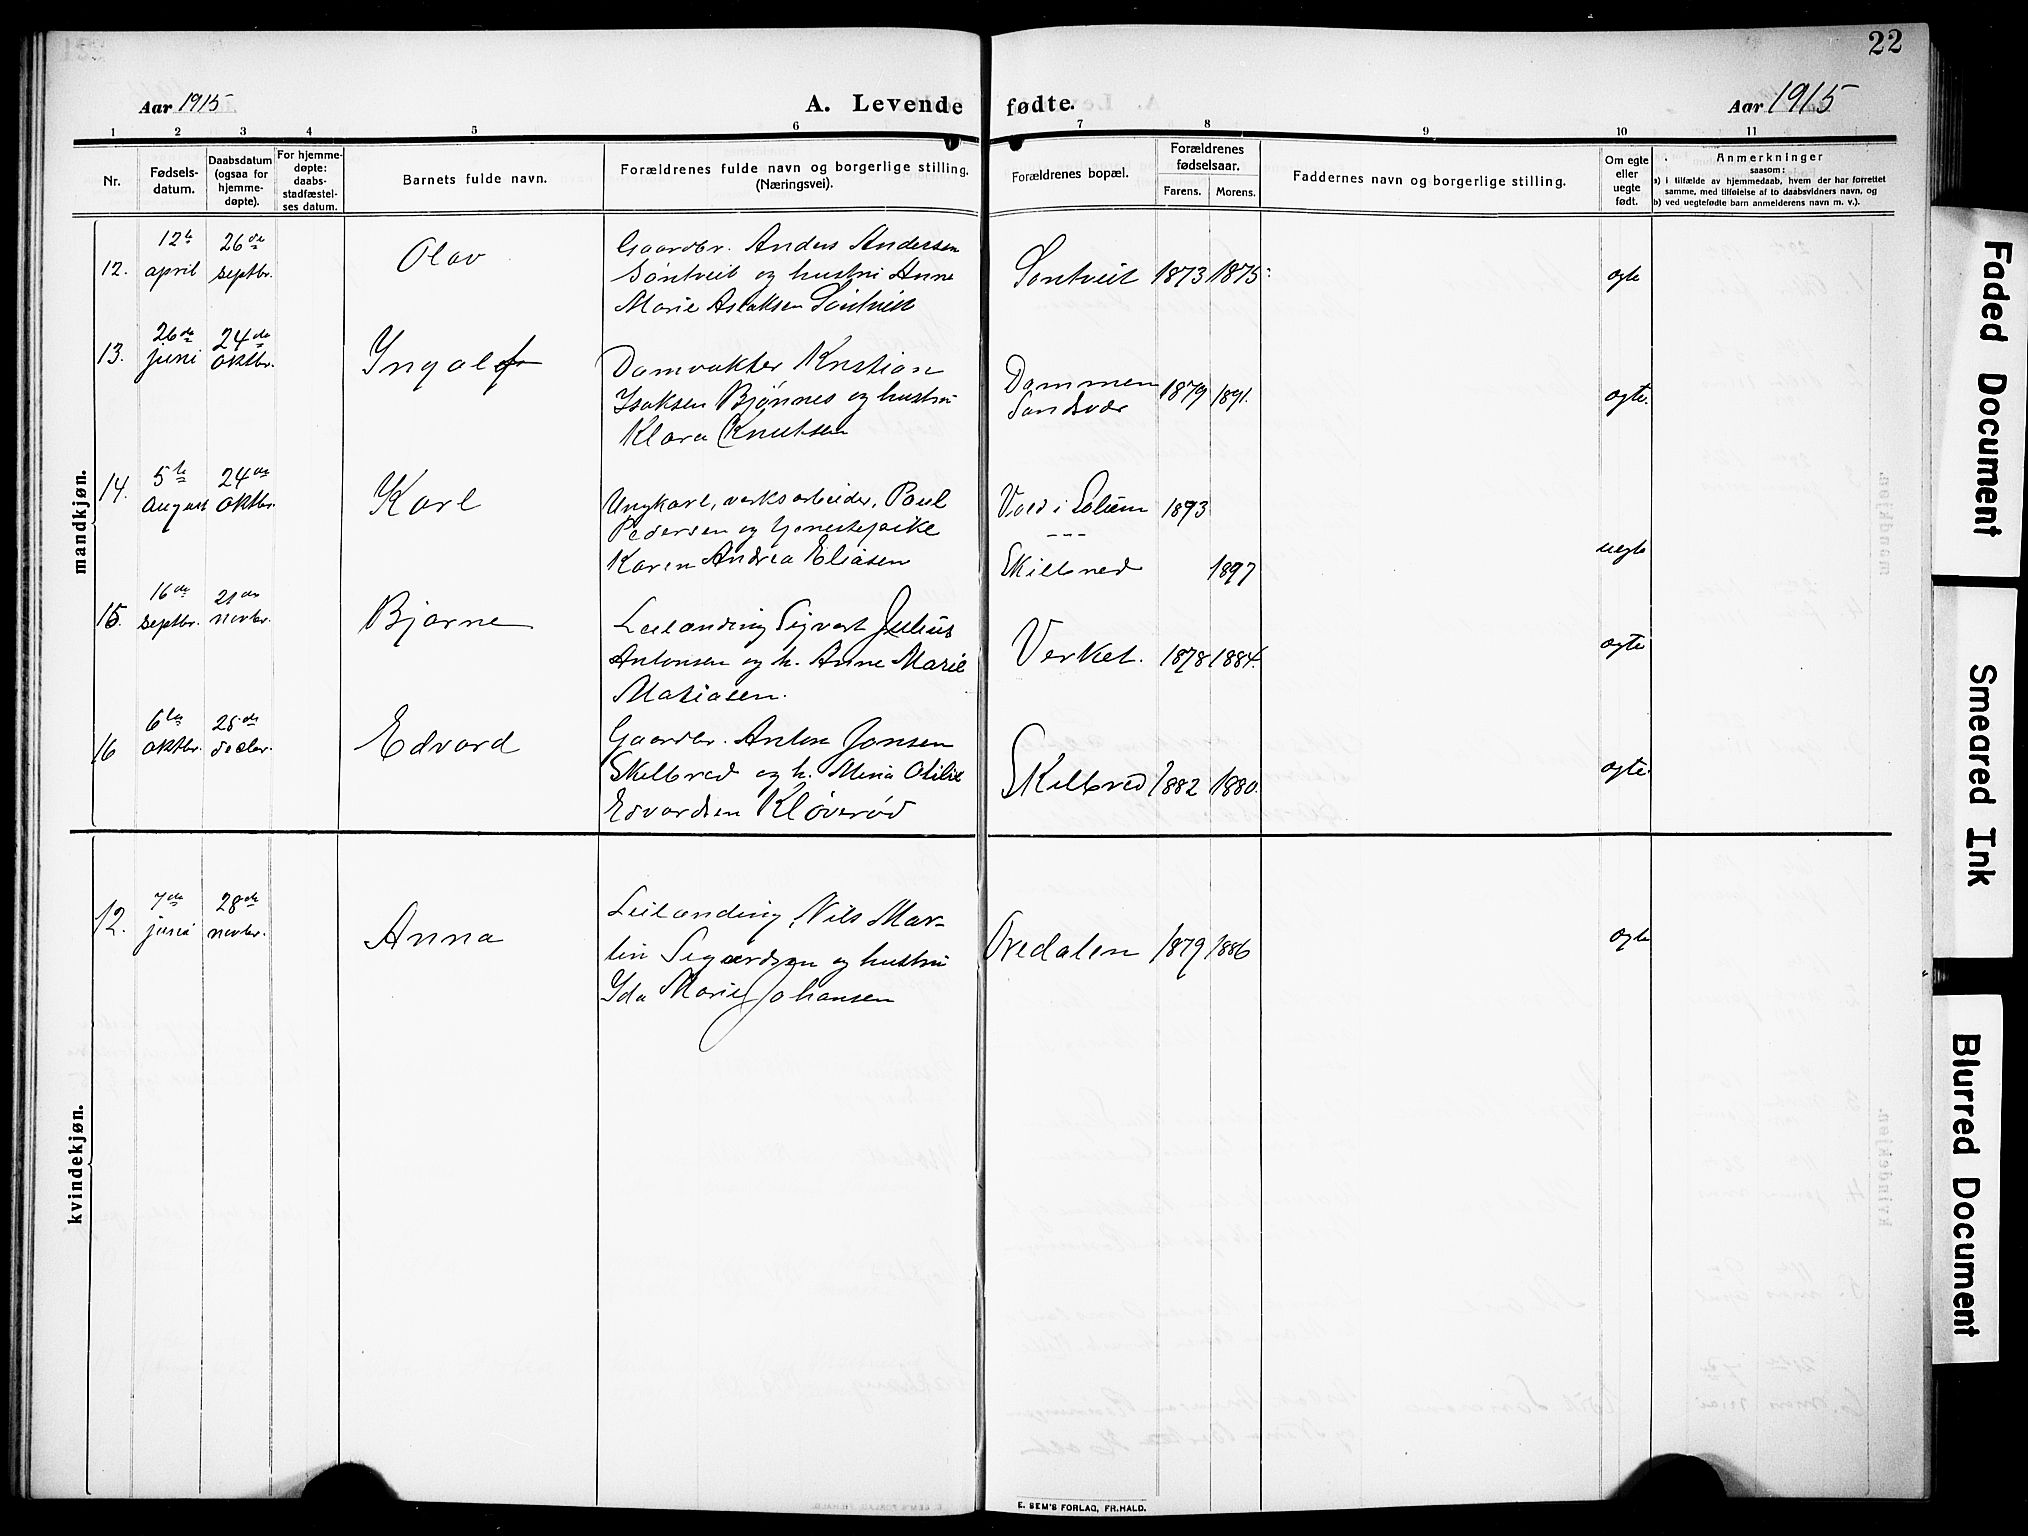 22
Aar 1915
A. Levende fødte.
Aar 1915
1 2 3 4 5 6 7 8 9 10 11
Nr.
Fødsels-
datum.
Daabsdatum
(ogsaa for
hjemme-
døpte).
For hjemme-
døpte:
daabs-
stadfæstel-
ses datum.
Barnets fulde navn.
Forældrenes fulde navn og borgerlige stilling.
(Næringsvei).
Forældrenes bopæl.
Forældrenes
fødselsaar.
Farens. Morens.
Faddernes navn og borgerlige stilling.
Om egte
eller
uegte
født.
Anmerkninger
saasom:
a) i tilfælde av hjemmedaab, hvem der har forrettet
samme, med tilføielse af to daabsvidners navn, og
b) ved uegtefødte barn anmelderens navn m. v.).
mandkjøn.
12.
12te
april
26de
septbr.
Olav
Gaardbr. Anders Andersen
Söntveit og hustru Anne
Marie Aslaksen Söntveit
Sontveit 1873 1875
egte
13.
26de
juni
24de
oktbr.
Yngolf
Damvakter Kristian
Isaksen Bjønnes og hustru
Klara Knutsen
Dammen
Sandsvær
1879 1891.
egte.
14.
5te
August
24de
oktbr.
Karl
Ungkarl, verksarbeider, Poul
Pedersen og tjenestepike
Karen Andrea Eliasen
Vold i Solum 1893
---
Skilbred 1897
uegte
15.
16de
septbr.
21de
novbr.
Bjarne
Leilænding Sigvart Julius
Antonsen og h. Anne Marie
Matiasen.
Verket. 1878 1884.
egte
16
6te
oktbr.
25de
decbr.
Edvard
Gaardbr. Anton Jansen
Skilbred og h. Mina Otilie
Edvardsen Kløverød
Skilbred 1882 1880.
egte.
kvindekjøn.
12.
7de
juni
28de
novbr.
Anna
Leilænding, Nils Mar-
tin Sigurdsen og hustru
Ida Marie Johansen
Ovedalen 1879 1886
egte
E. SEM'S FORLAG, FR.HALD.
Faded Document
Smeared Ink
Blurred Document